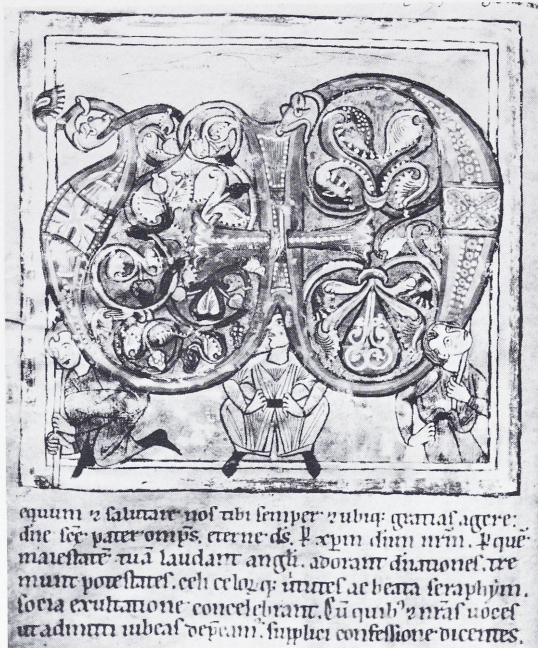 equum ⁊ salutare nos tibi semper ⁊ ubiq; gratias agere:
dne scē pater omps. eterne ds. ꝑ xpm dnm nrm. ꝑ quē
maiestatē tuā laudant angli. adorant dnationes. tre
munt potestates. celi celorq; uirtutes ac beata seraphym.
socia exultatione concelebrant. Cū quib' ⁊ nras uoces
ut admitti iubeas depcam'. supplici confessione dicentes.